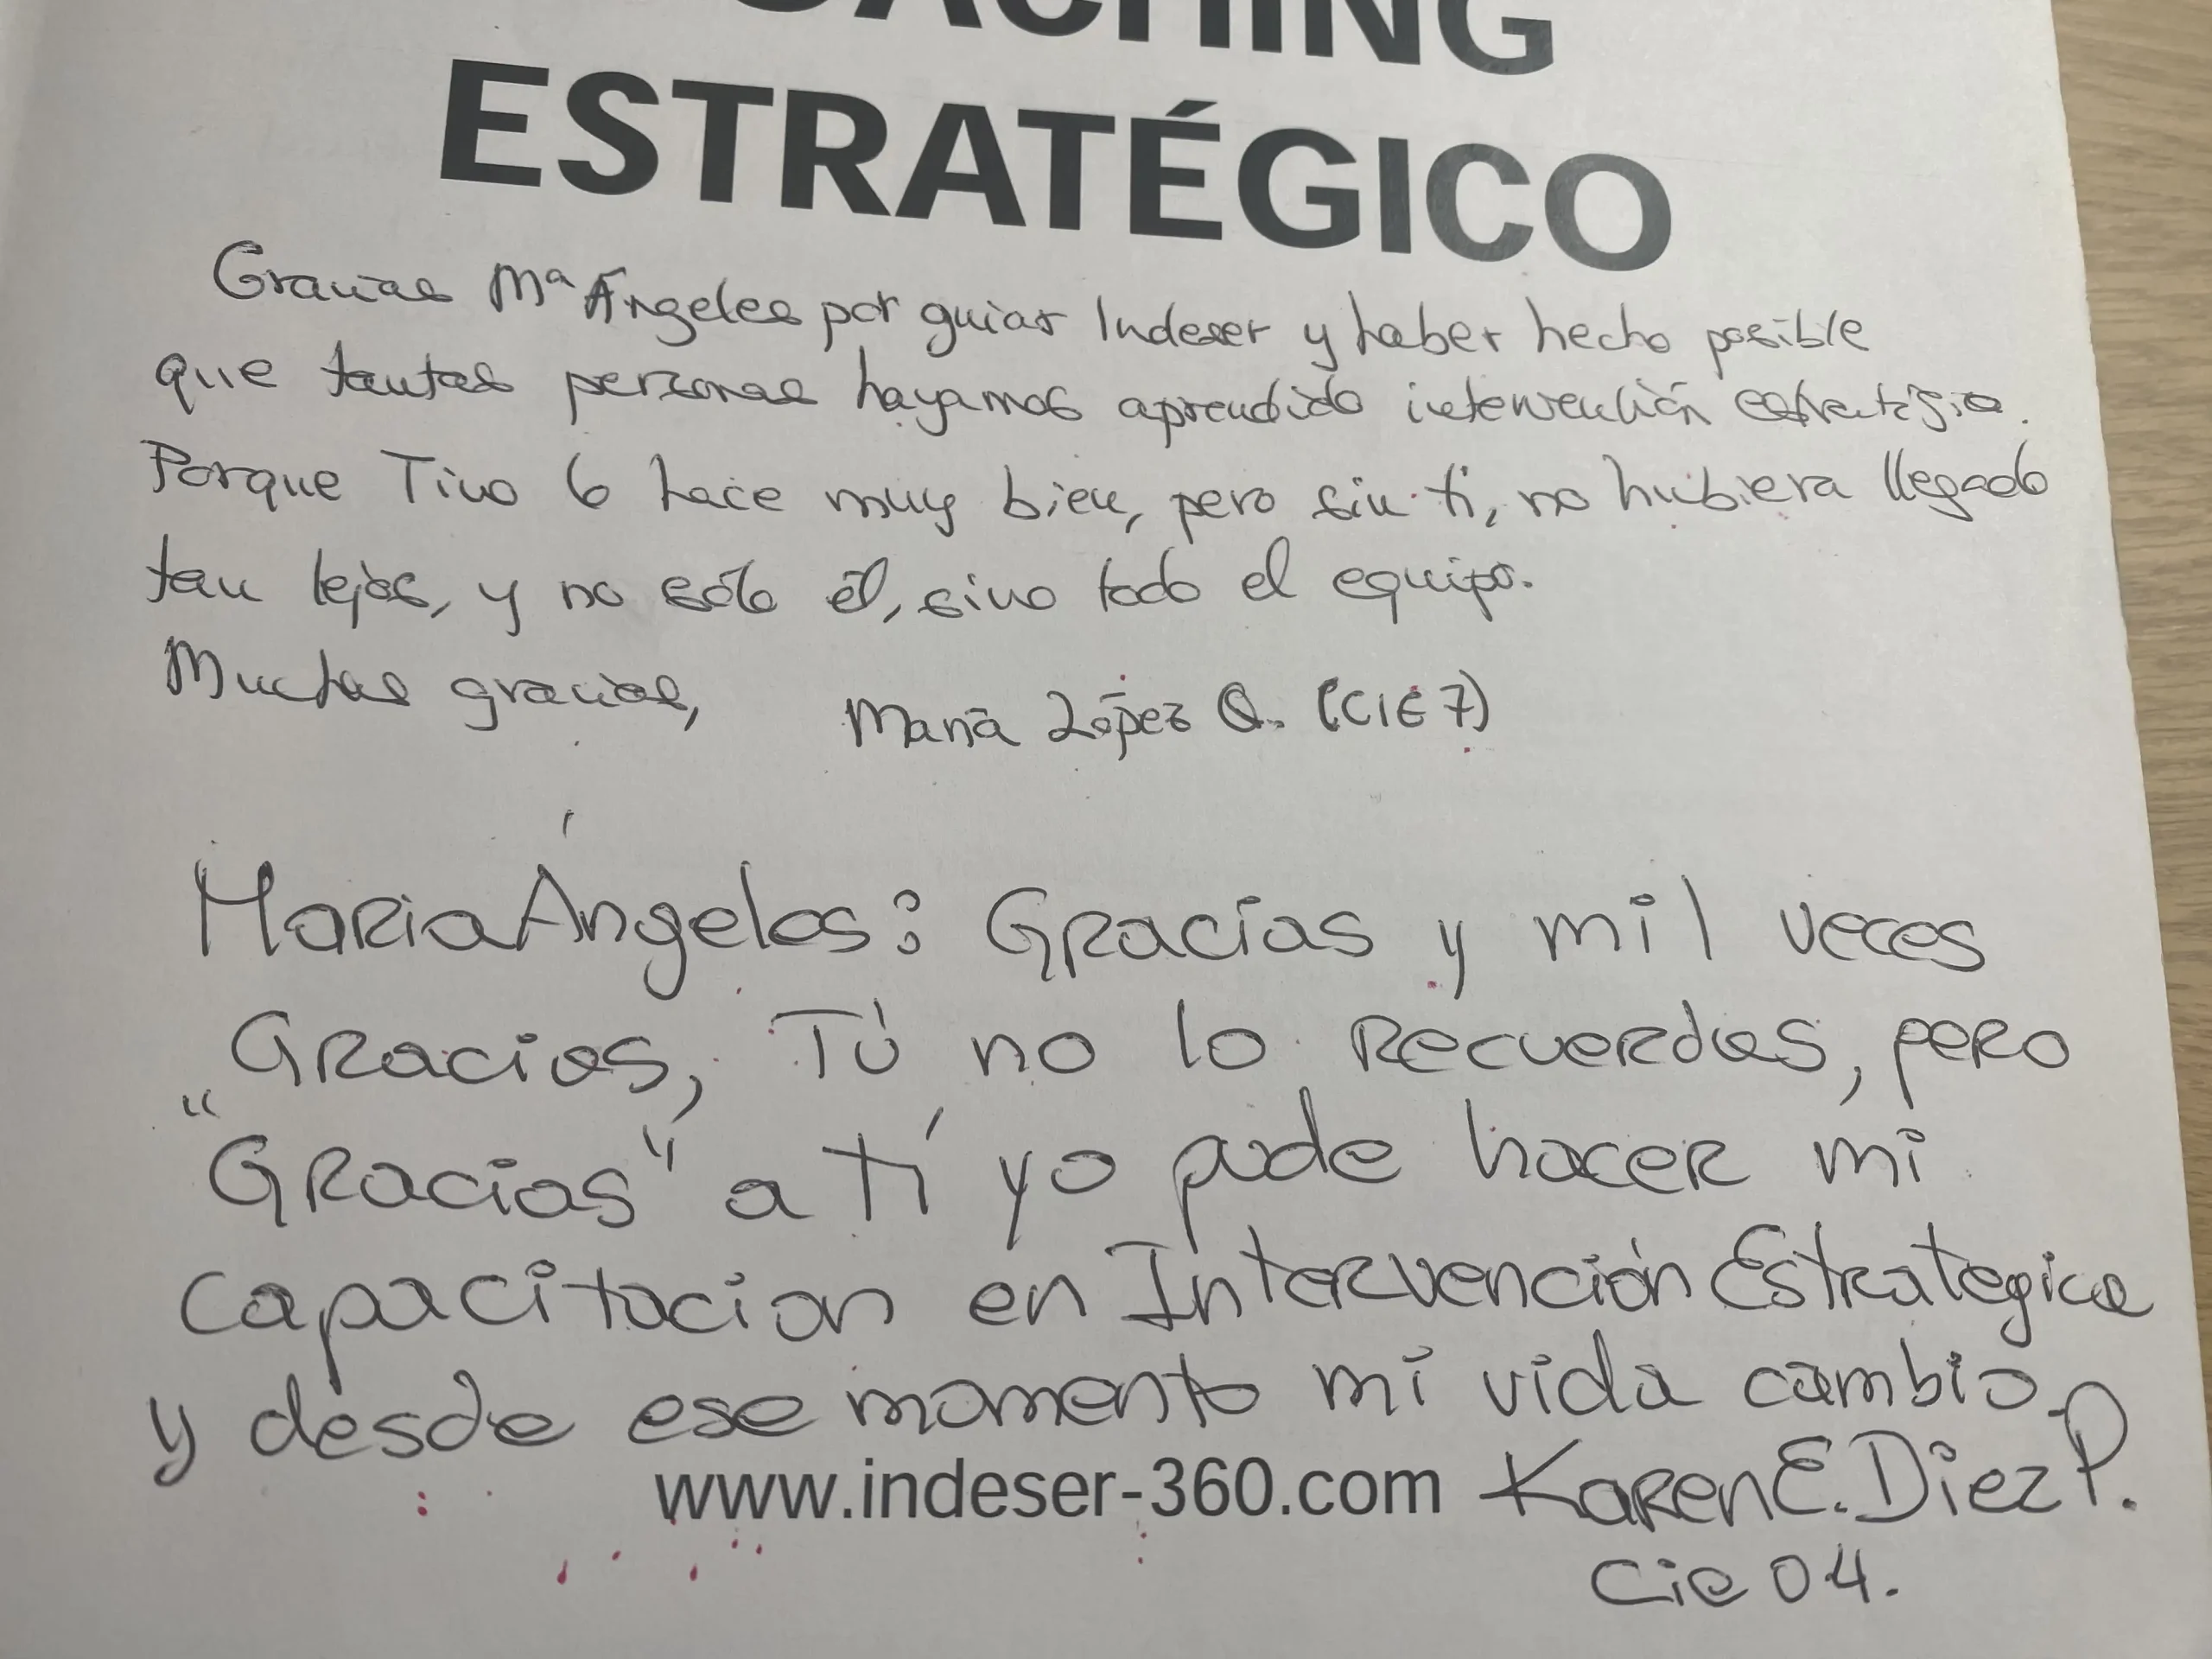 COACHING
ESTRATÉGICO
Gracias Mª Ángeles por guiar Indeser y haber hecho posible
que tantas personas hayamos aprendido intervención estratégica.
Porque Tino lo hace muy bien, pero sin ti, no hubiera llegado
tan lejos, y no sólo él, sino todo el equipo.
Muchas gracias,
María López Q. (CIE 7)
Maria Ángeles: Gracias y mil veces
Gracias, Tú no lo recuerdas, pero
"Gracias" a tí yo pude hacer mi
capacitacion en Intervención Estrategica
y desde ese momento mi vida cambio.
www.indeser-360.com
Karen E. Diez P.
Cie 04.